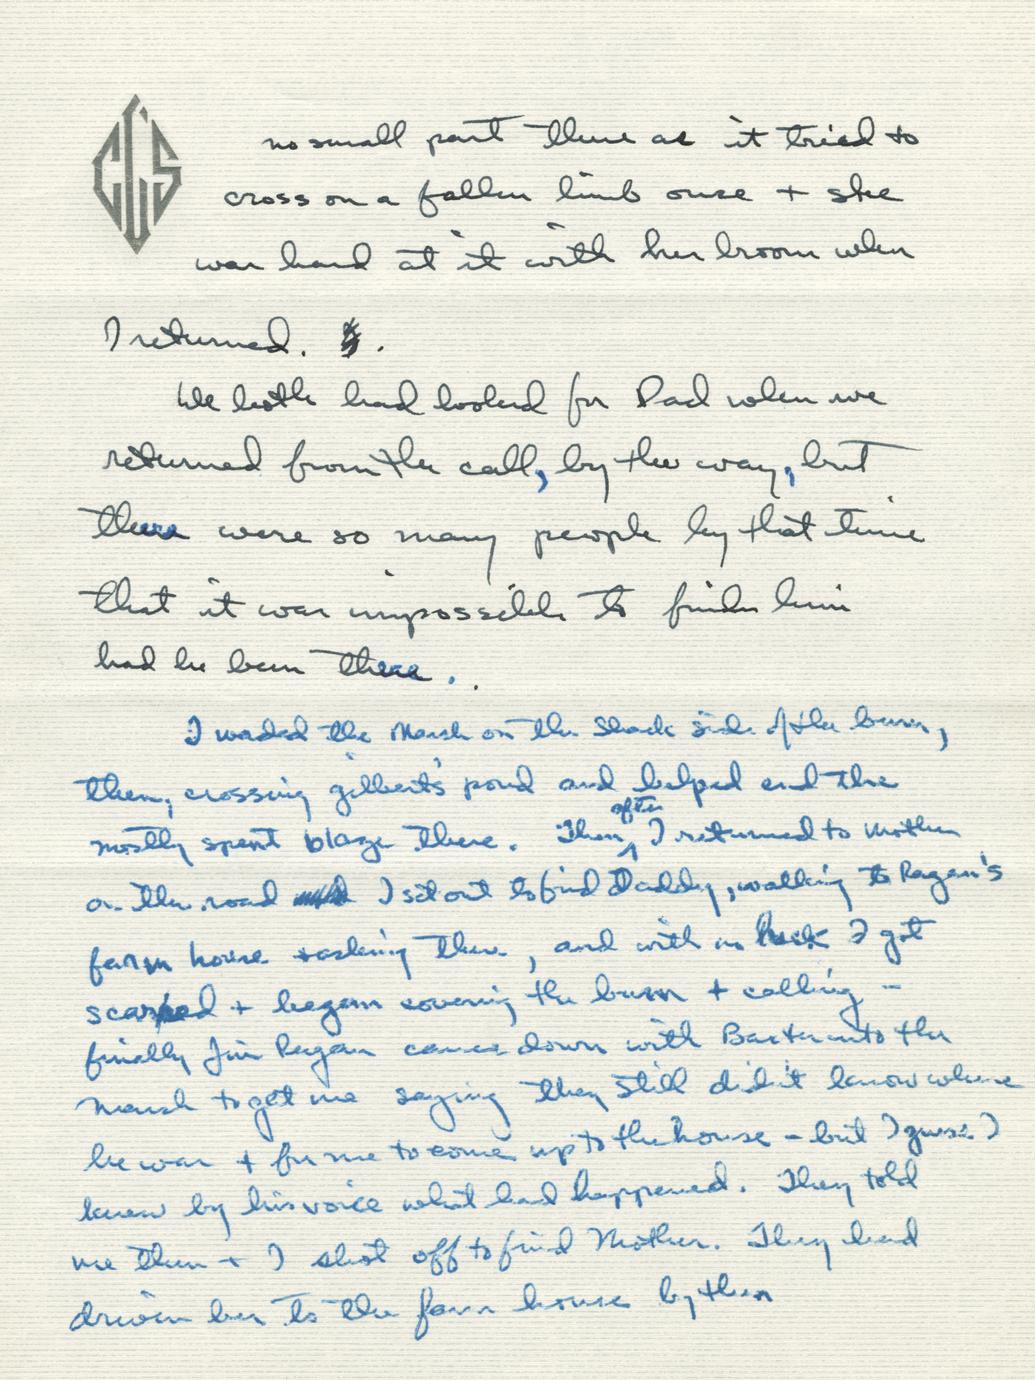 CLS
no small part there as it tried to
cross on a fallen limb once + she
was hard at it with her broom when
I returned.
We both had looked for Dad when we
returned from the call, by the way, but
there were so many people by that time
that it was impossible to find him
had he been there.
I waded the marsh on the shack side of the burn,
then, crossing gilbert's pond and helped end the
mostly spent blaze there. Then after I returned to Mother
on the road I set out to find Daddy, walking to Ragan's
farm house + asking there, and with no luck I got
scared + began covering the burn + calling -
finally Jim Regan came down with Baxter into the
marsh to get me saying they still didn't know where
he was + for me to come up to the house - but I guess I
knew by his voice what had happened. They told
me then + I shot off to find Mother. They had
driven her to the farm house by then